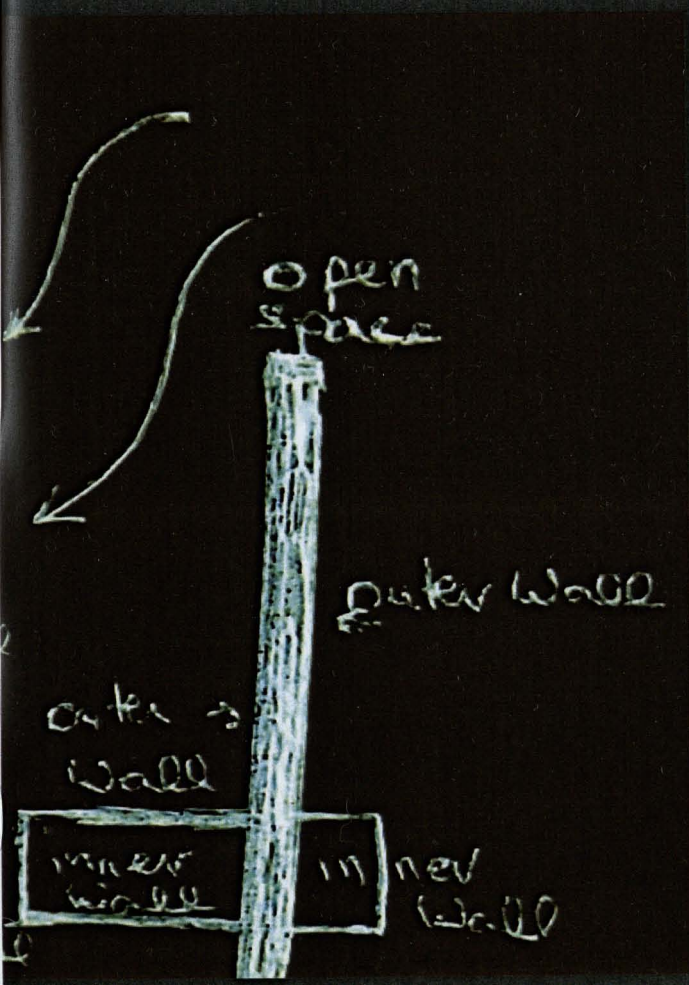 open
space
outer Wall
outer
Wall
inner
wall
inner
Wall